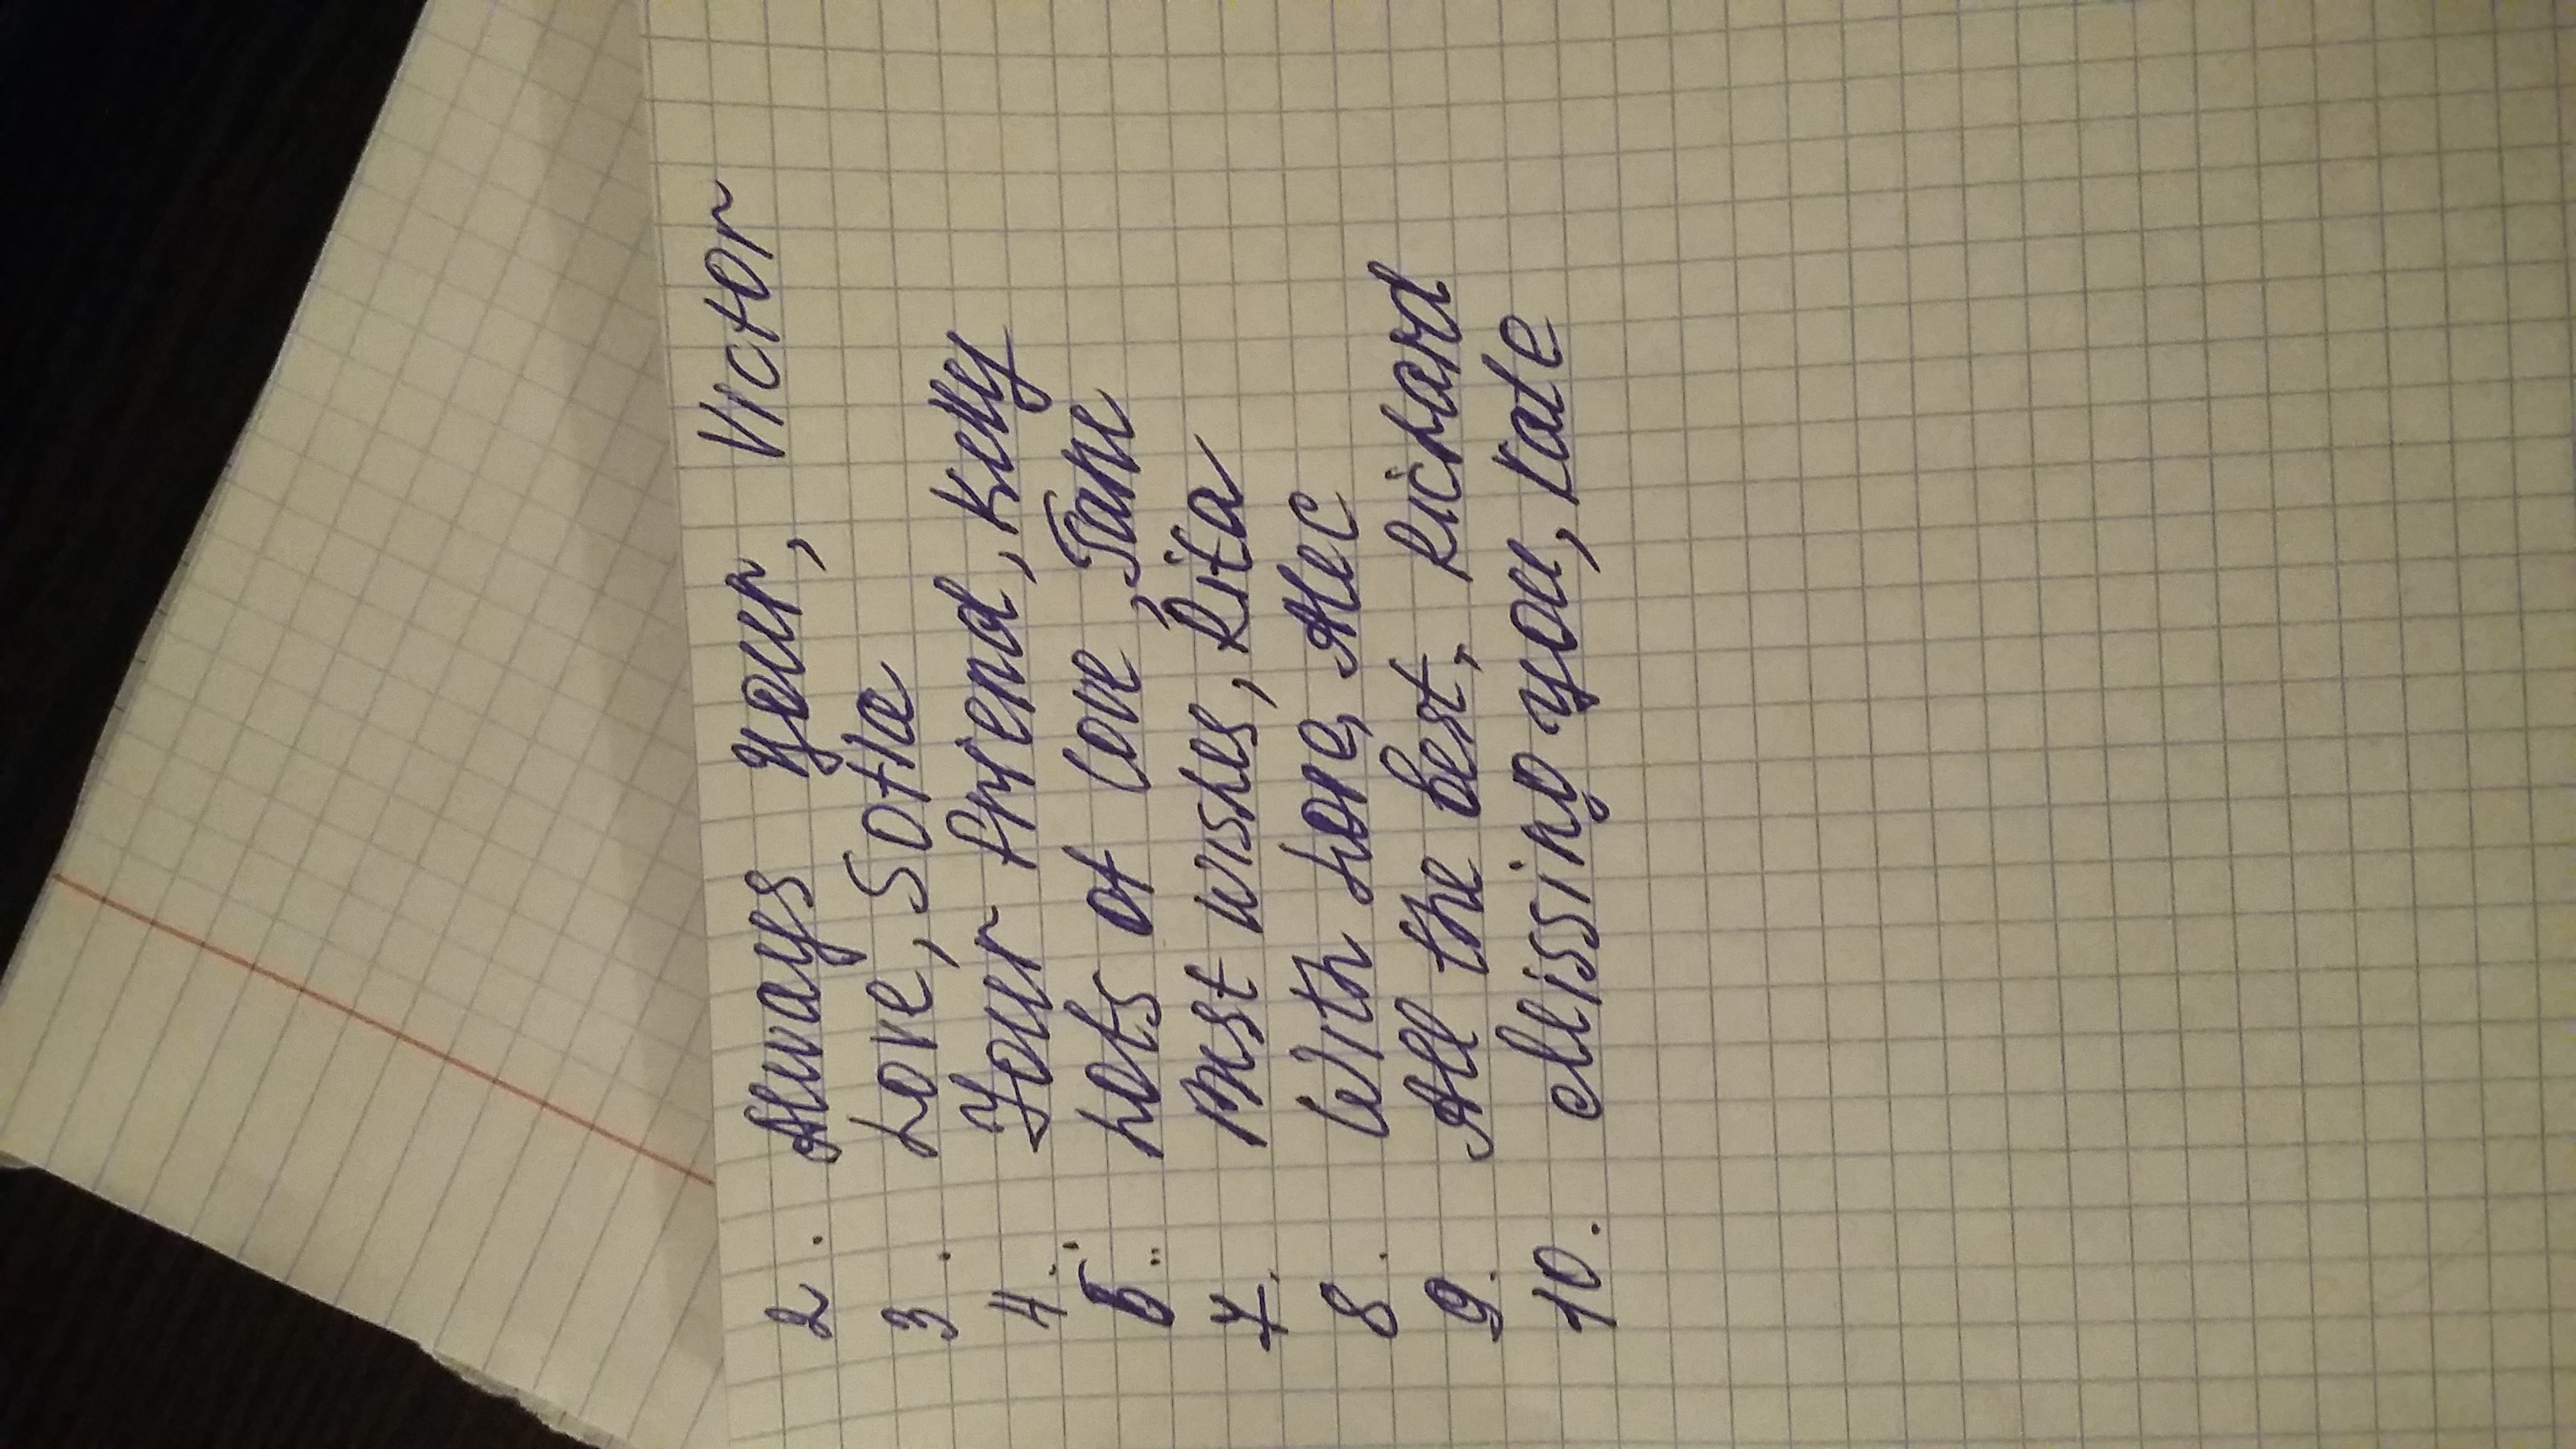 2. Always your, Victor
3. Love, Sofie
4. Your friend, Kelly
6. Lots of love, Jane
7. Best wishes, Rita
8. With hope, Alec
9. All the best, Richard
10. Missing you, Kate